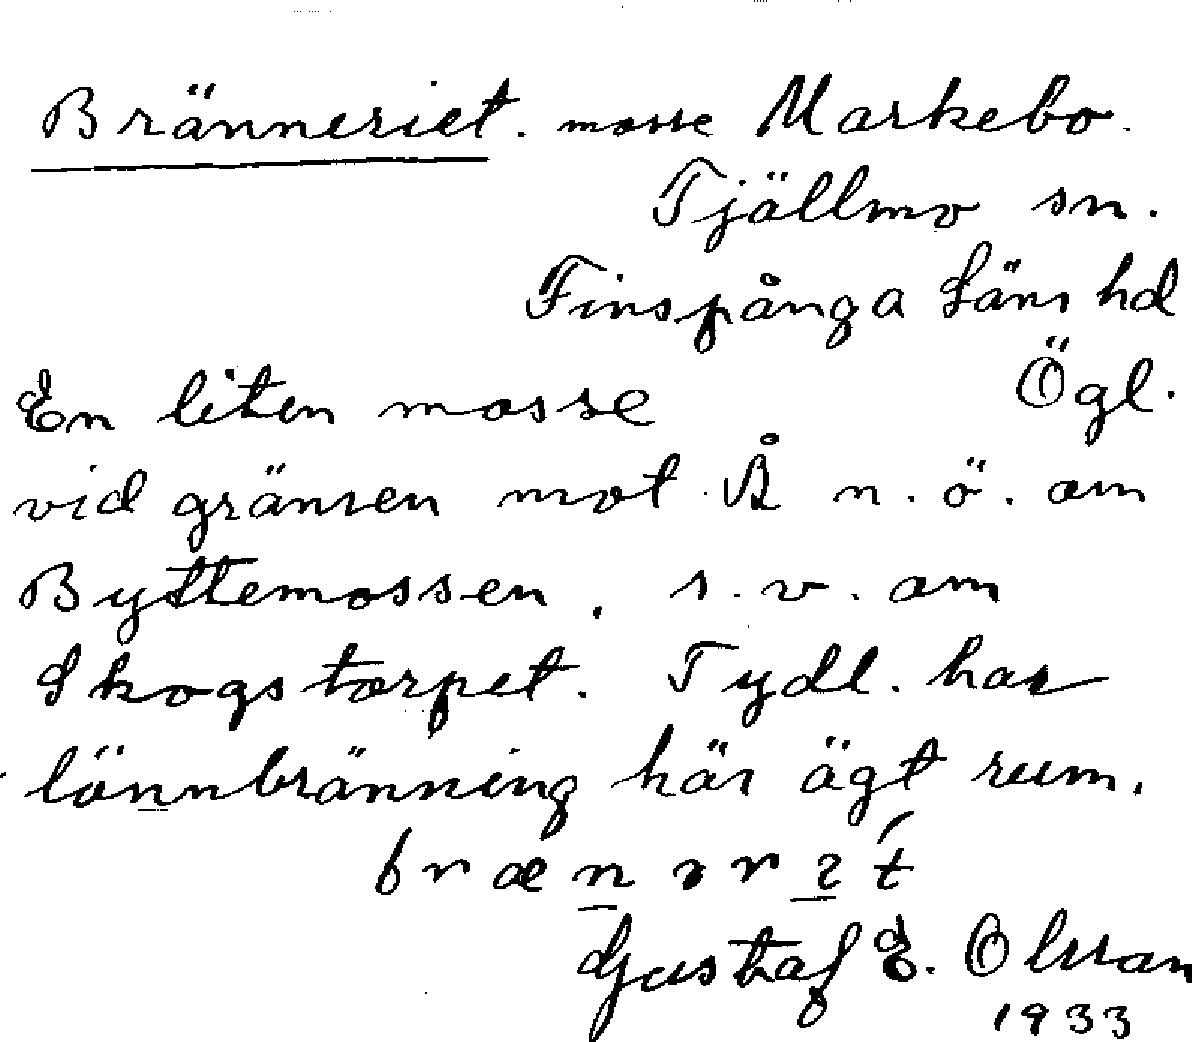 Bränneriet. mosse Markebo.
Tjällmo sn.
Finspånga Läns hd
Ögl.
En liten mosse
vid gränsen mot Å n.ö. om
Byttemossen, s.v. om
Skogstorpet. Tydl. har
lönnbränning här ägt rum.
Gustaf E. Olsson
1933